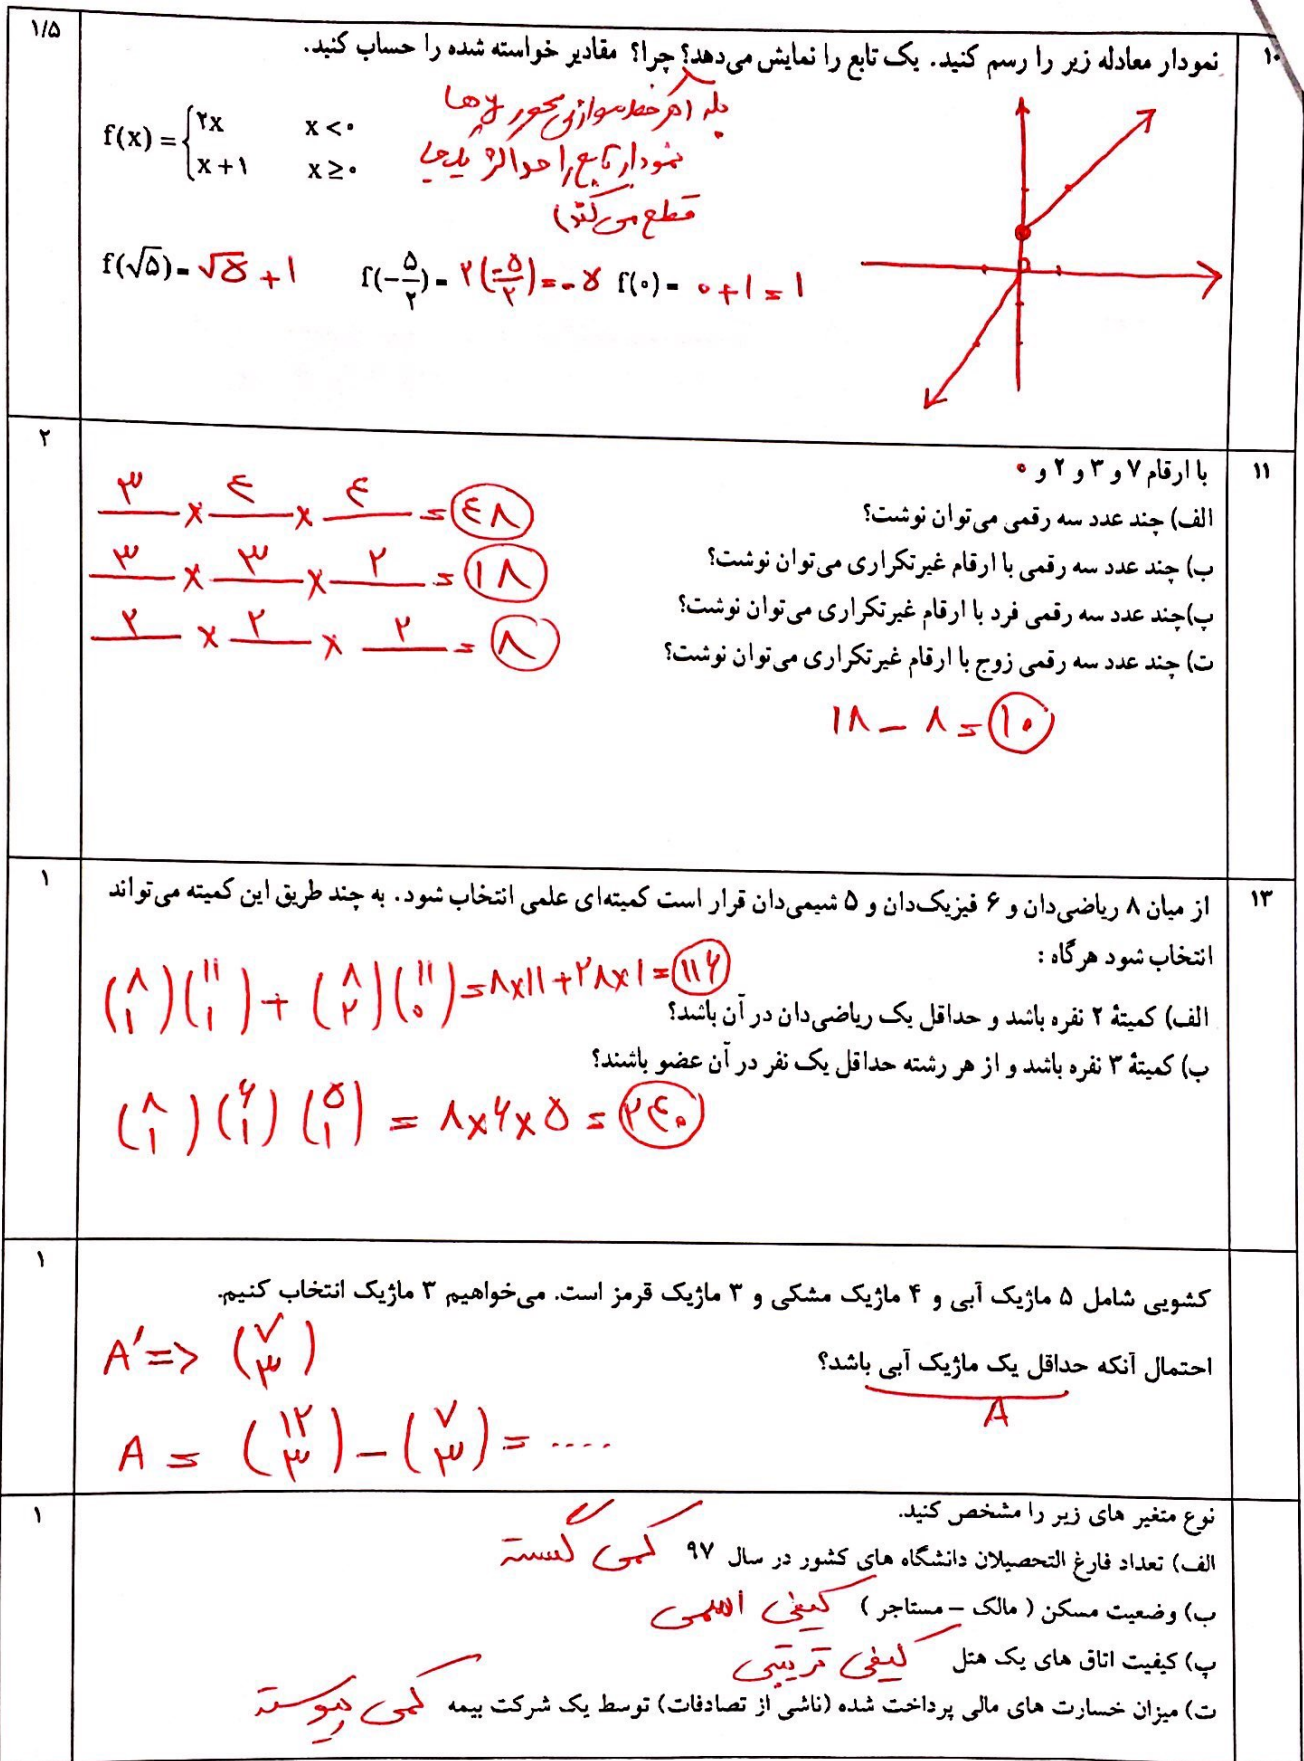 ۱/۵
۱۰
نمودار معادله زیر را رسم کنید. یک تابع را نمایش می‌دهد؟ چرا؟ مقادیر خواسته شده را حساب کنید.
بله (هر خط موازی محور yها
نمودار تابع را حداکثر یکجا
قطع می‌کند)
f(x) = { ۲x x < ۰
x + ۱ x ≥ ۰
f(√۵) = √۵ + ۱ f(-۵/۲) = ۲(-۵/۲) = -۵ f(۰) = ۰ + ۱ = ۱
۲
۱۱
با ارقام ۷ و ۳ و ۲ و ۰
الف) چند عدد سه رقمی می‌توان نوشت؟
۳ × ۴ × ۴ = ۴۸
ب) چند عدد سه رقمی با ارقام غیرتکراری می‌توان نوشت؟
۳ × ۳ × ۲ = ۱۸
پ)چند عدد سه رقمی فرد با ارقام غیرتکراری می‌توان نوشت؟
۲ × ۲ × ۲ = ۸
ت) چند عدد سه رقمی زوج با ارقام غیرتکراری می‌توان نوشت؟
۱۸ - ۸ = ۱۰
۱
۱۳
از میان ۸ ریاضی‌دان و ۶ فیزیک‌دان و ۵ شیمی‌دان قرار است کمیته‌ای علمی انتخاب شود. به چند طریق این کمیته می‌تواند
انتخاب شود هرگاه :
الف) کمیتهٔ ۲ نفره باشد و حداقل یک ریاضی‌دان در آن باشد؟
(۸ ۱)(۱۱ ۱) + (۸ ۲)(۱۱ ۰) = ۸×۱۱ + ۲۸×۱ = ۱۱۶
ب) کمیتهٔ ۳ نفره باشد و از هر رشته حداقل یک نفر در آن عضو باشند؟
(۸ ۱)(۶ ۱)(۵ ۱) = ۸×۶×۵ = ۲۴۰
۱
کشویی شامل ۵ ماژیک آبی و ۴ ماژیک مشکی و ۳ ماژیک قرمز است. می‌خواهیم ۳ ماژیک انتخاب کنیم.
احتمال آنکه حداقل یک ماژیک آبی باشد؟
A
A' => (۷ ۳)
A = (۱۲ ۳) - (۷ ۳) = ....
۱
نوع متغیر های زیر را مشخص کنید.
الف) تعداد فارغ التحصیلان دانشگاه های کشور در سال ۹۷ کمی گسسته
ب) وضعیت مسکن ( مالک – مستاجر ) کیفی اسمی
پ) کیفیت اتاق های یک هتل کیفی ترتیبی
ت) میزان خسارت های مالی پرداخت شده (ناشی از تصادفات) توسط یک شرکت بیمه کمی پیوسته